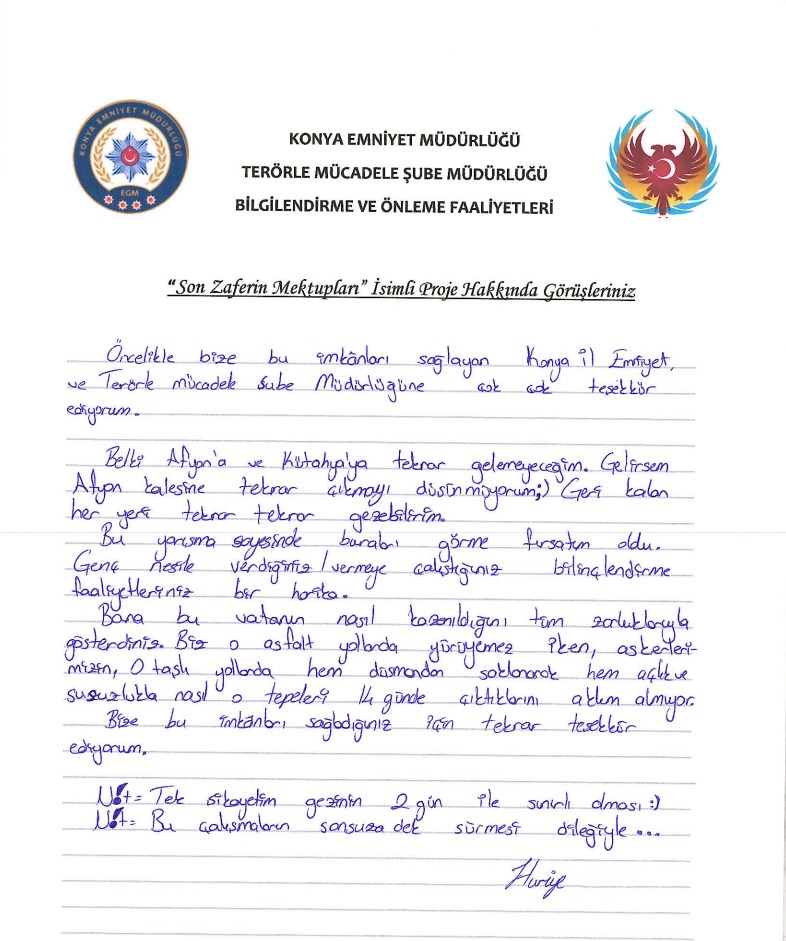 KONYA EMNİYET MÜDÜRLÜĞÜ
EGM
KONYA EMNİYET MÜDÜRLÜĞÜ
TERÖRLE MÜCADELE ŞUBE MÜDÜRLÜĞÜ
BİLGİLENDİRME VE ÖNLEME FAALİYETLERİ
“Son Zaferin Mektupları” İsimli Proje Hakkında Görüşleriniz
Öncelikle bize bu imkânları sağlayan Konya il Emniyet,
ve Terörle mücadele Şube Müdürlüğüne çok çok teşekkür
ediyorum.
Belki Afyon'a ve Kütahya'ya tekrar gelemeyeceğim. Gelirsem
Afyon kalesine tekrar çıkmayı düşünmüyorum;) Geri kalan
her yeri tekrar tekrar gezebilirim.
Bu yarışma sayesinde buraları görme fırsatım oldu.
Genç nesile verdiğiniz/vermeye çalıştığınız bilinçlendirme
faaliyetleriniz bir harika.
Bana bu vatanın nasıl kazanıldığını tüm zorluklarıyla
gösterdiniz. Biz o asfalt yollarda yürüyemez iken, askerleri-
mizin, O taşlı yollarda hem düşmandan saklanarak hem açlık ve
susuzlukla nasıl o tepeleri 14 günde çıktıklarını aklım almıyor.
Bize bu imkânları sağladığınız için tekrar teşekkür
ediyorum.
Not= Tek şikayetim gezinin 2 gün ile sınırlı olması :)
Not= Bu çalışmaların sonsuza dek sürmesi dileğiyle...
Huriye